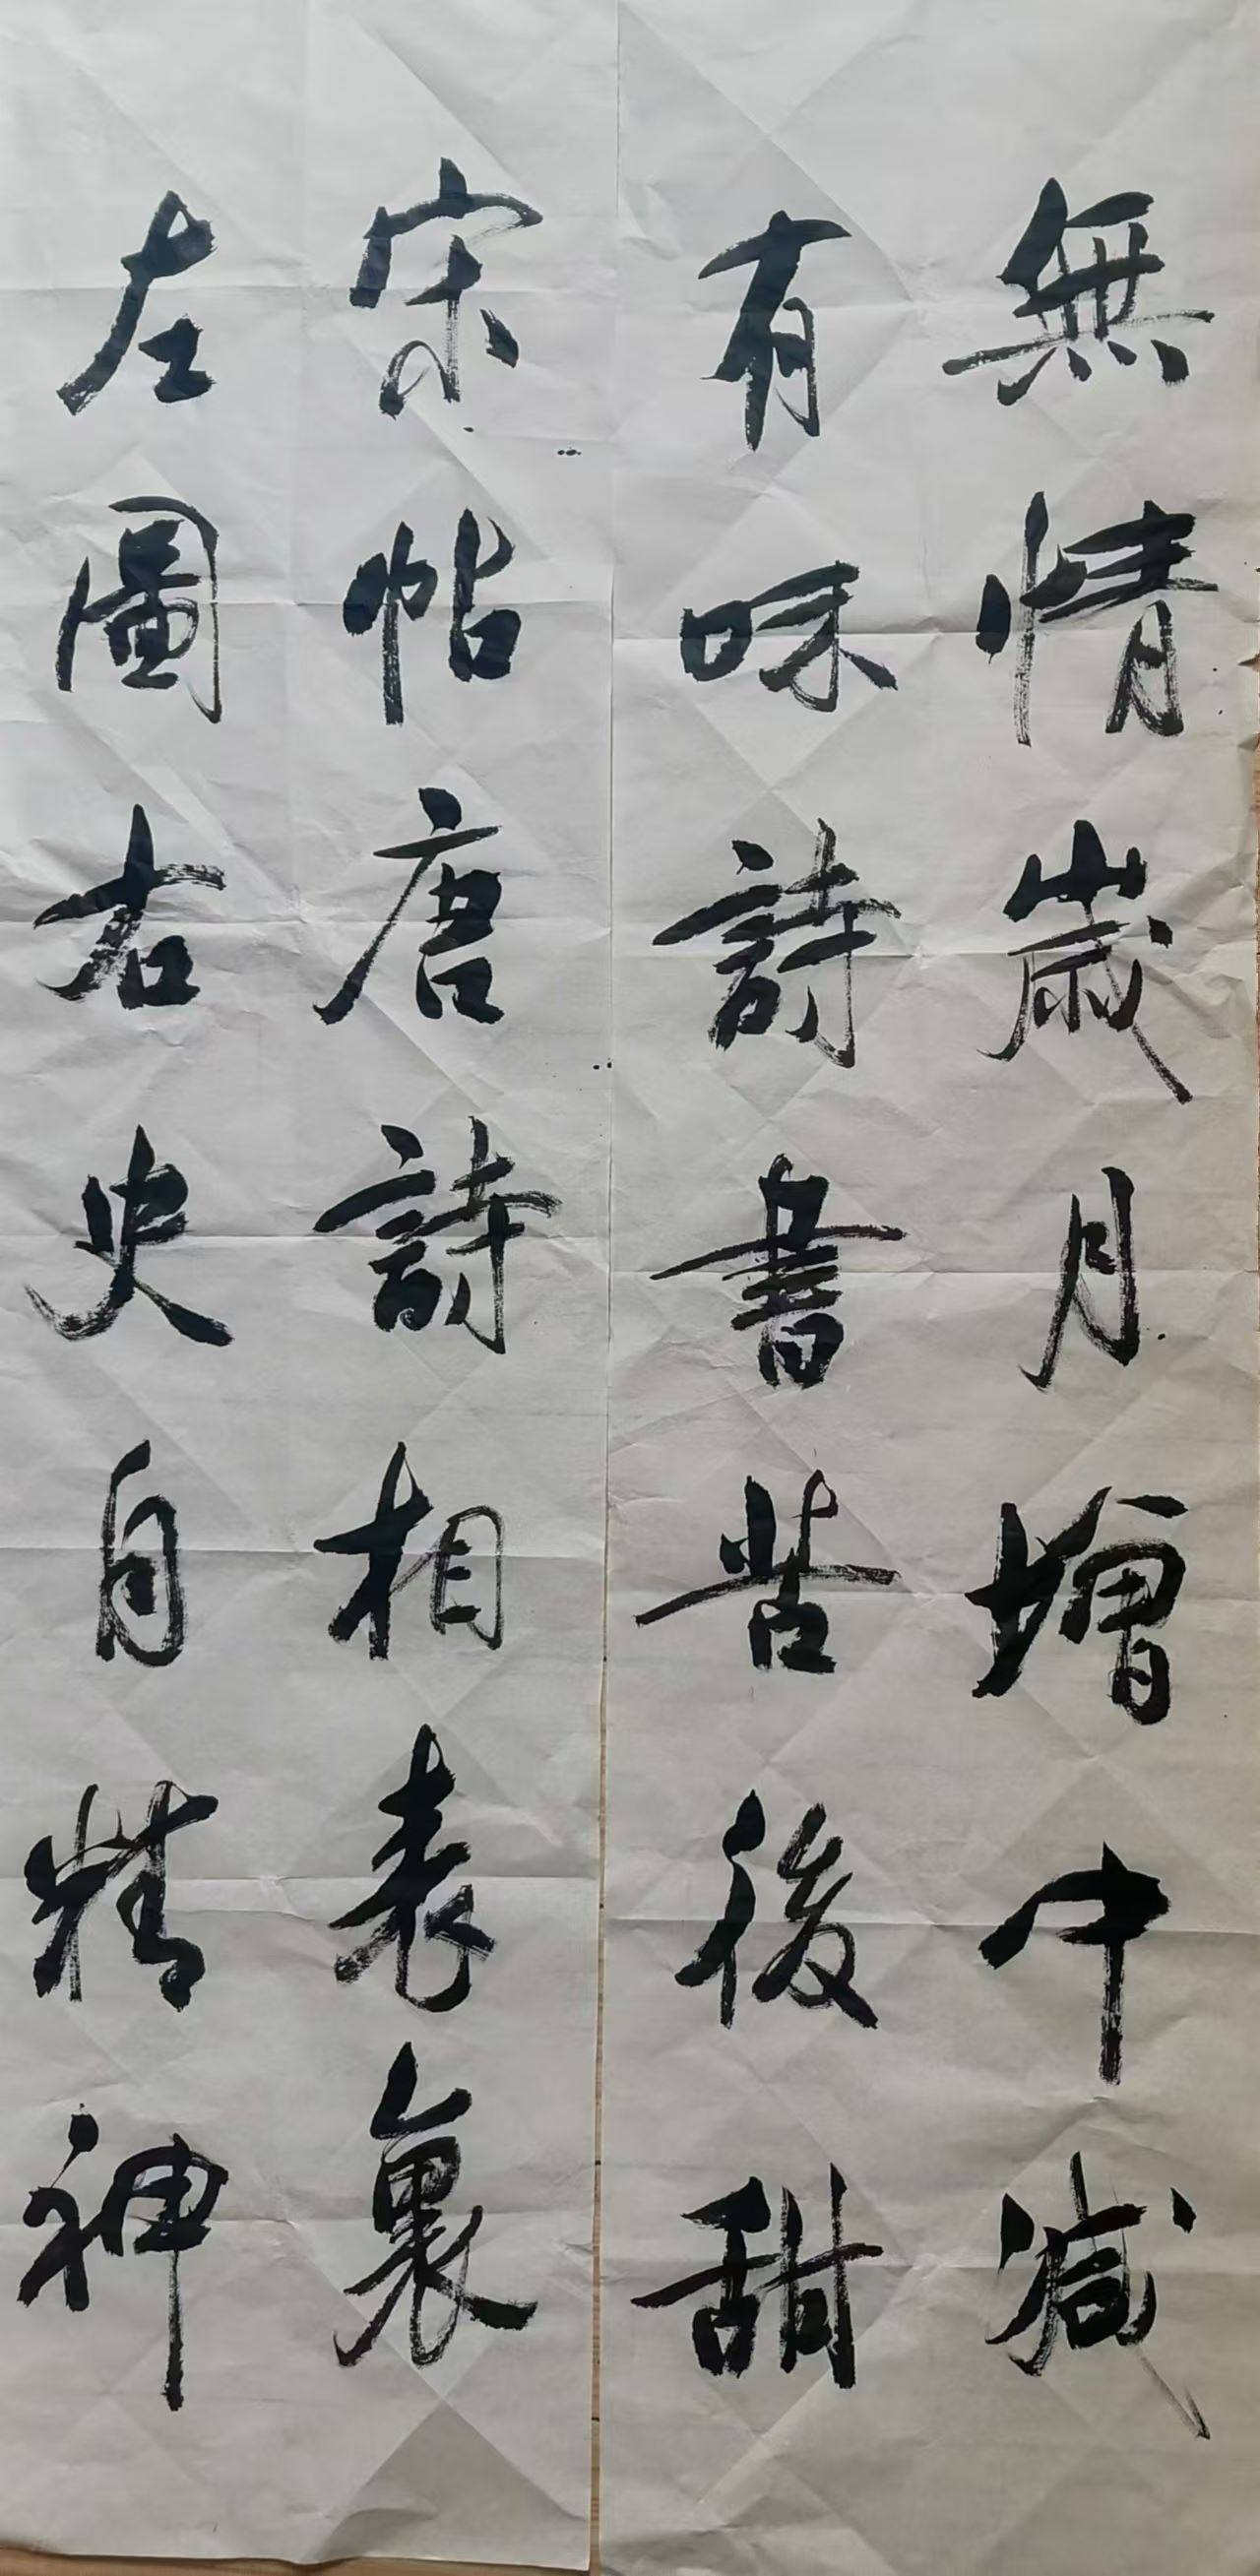 無情歲月增中減
有味詩書苦後甜
宋帖唐詩相表裏
左圖右史自精神